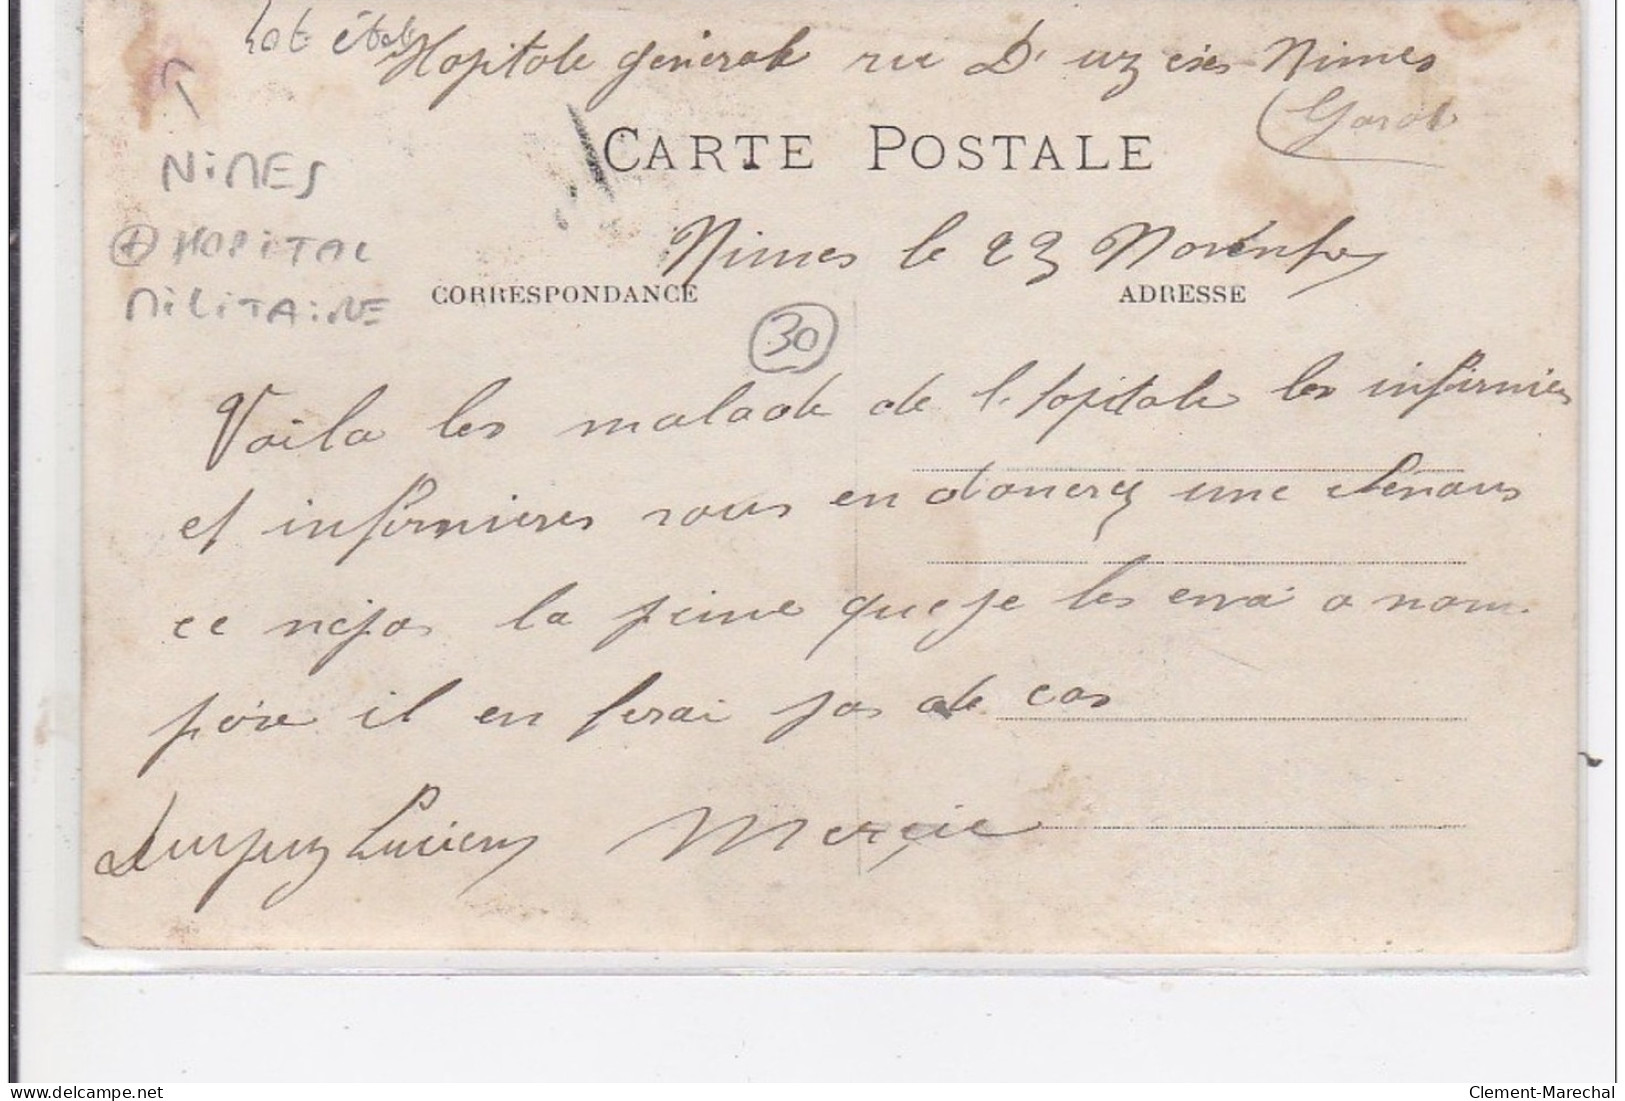 Hopitale générale rue D'uzes Nimes
(Gard
CARTE POSTALE
NiMES
HOPITAL
MILITAiRE
Nimes le 23 Novenbre
CORRESPONDANCE
ADRESSE
30
Voila les malade de l'hopitale les infirmiers
et infirmieres vous en donnerez une
ce nejas la peine que je les envai a nom
poire il en ferai pas de cas
Lucien Merçie
delcampe.net
Clement-Marechal